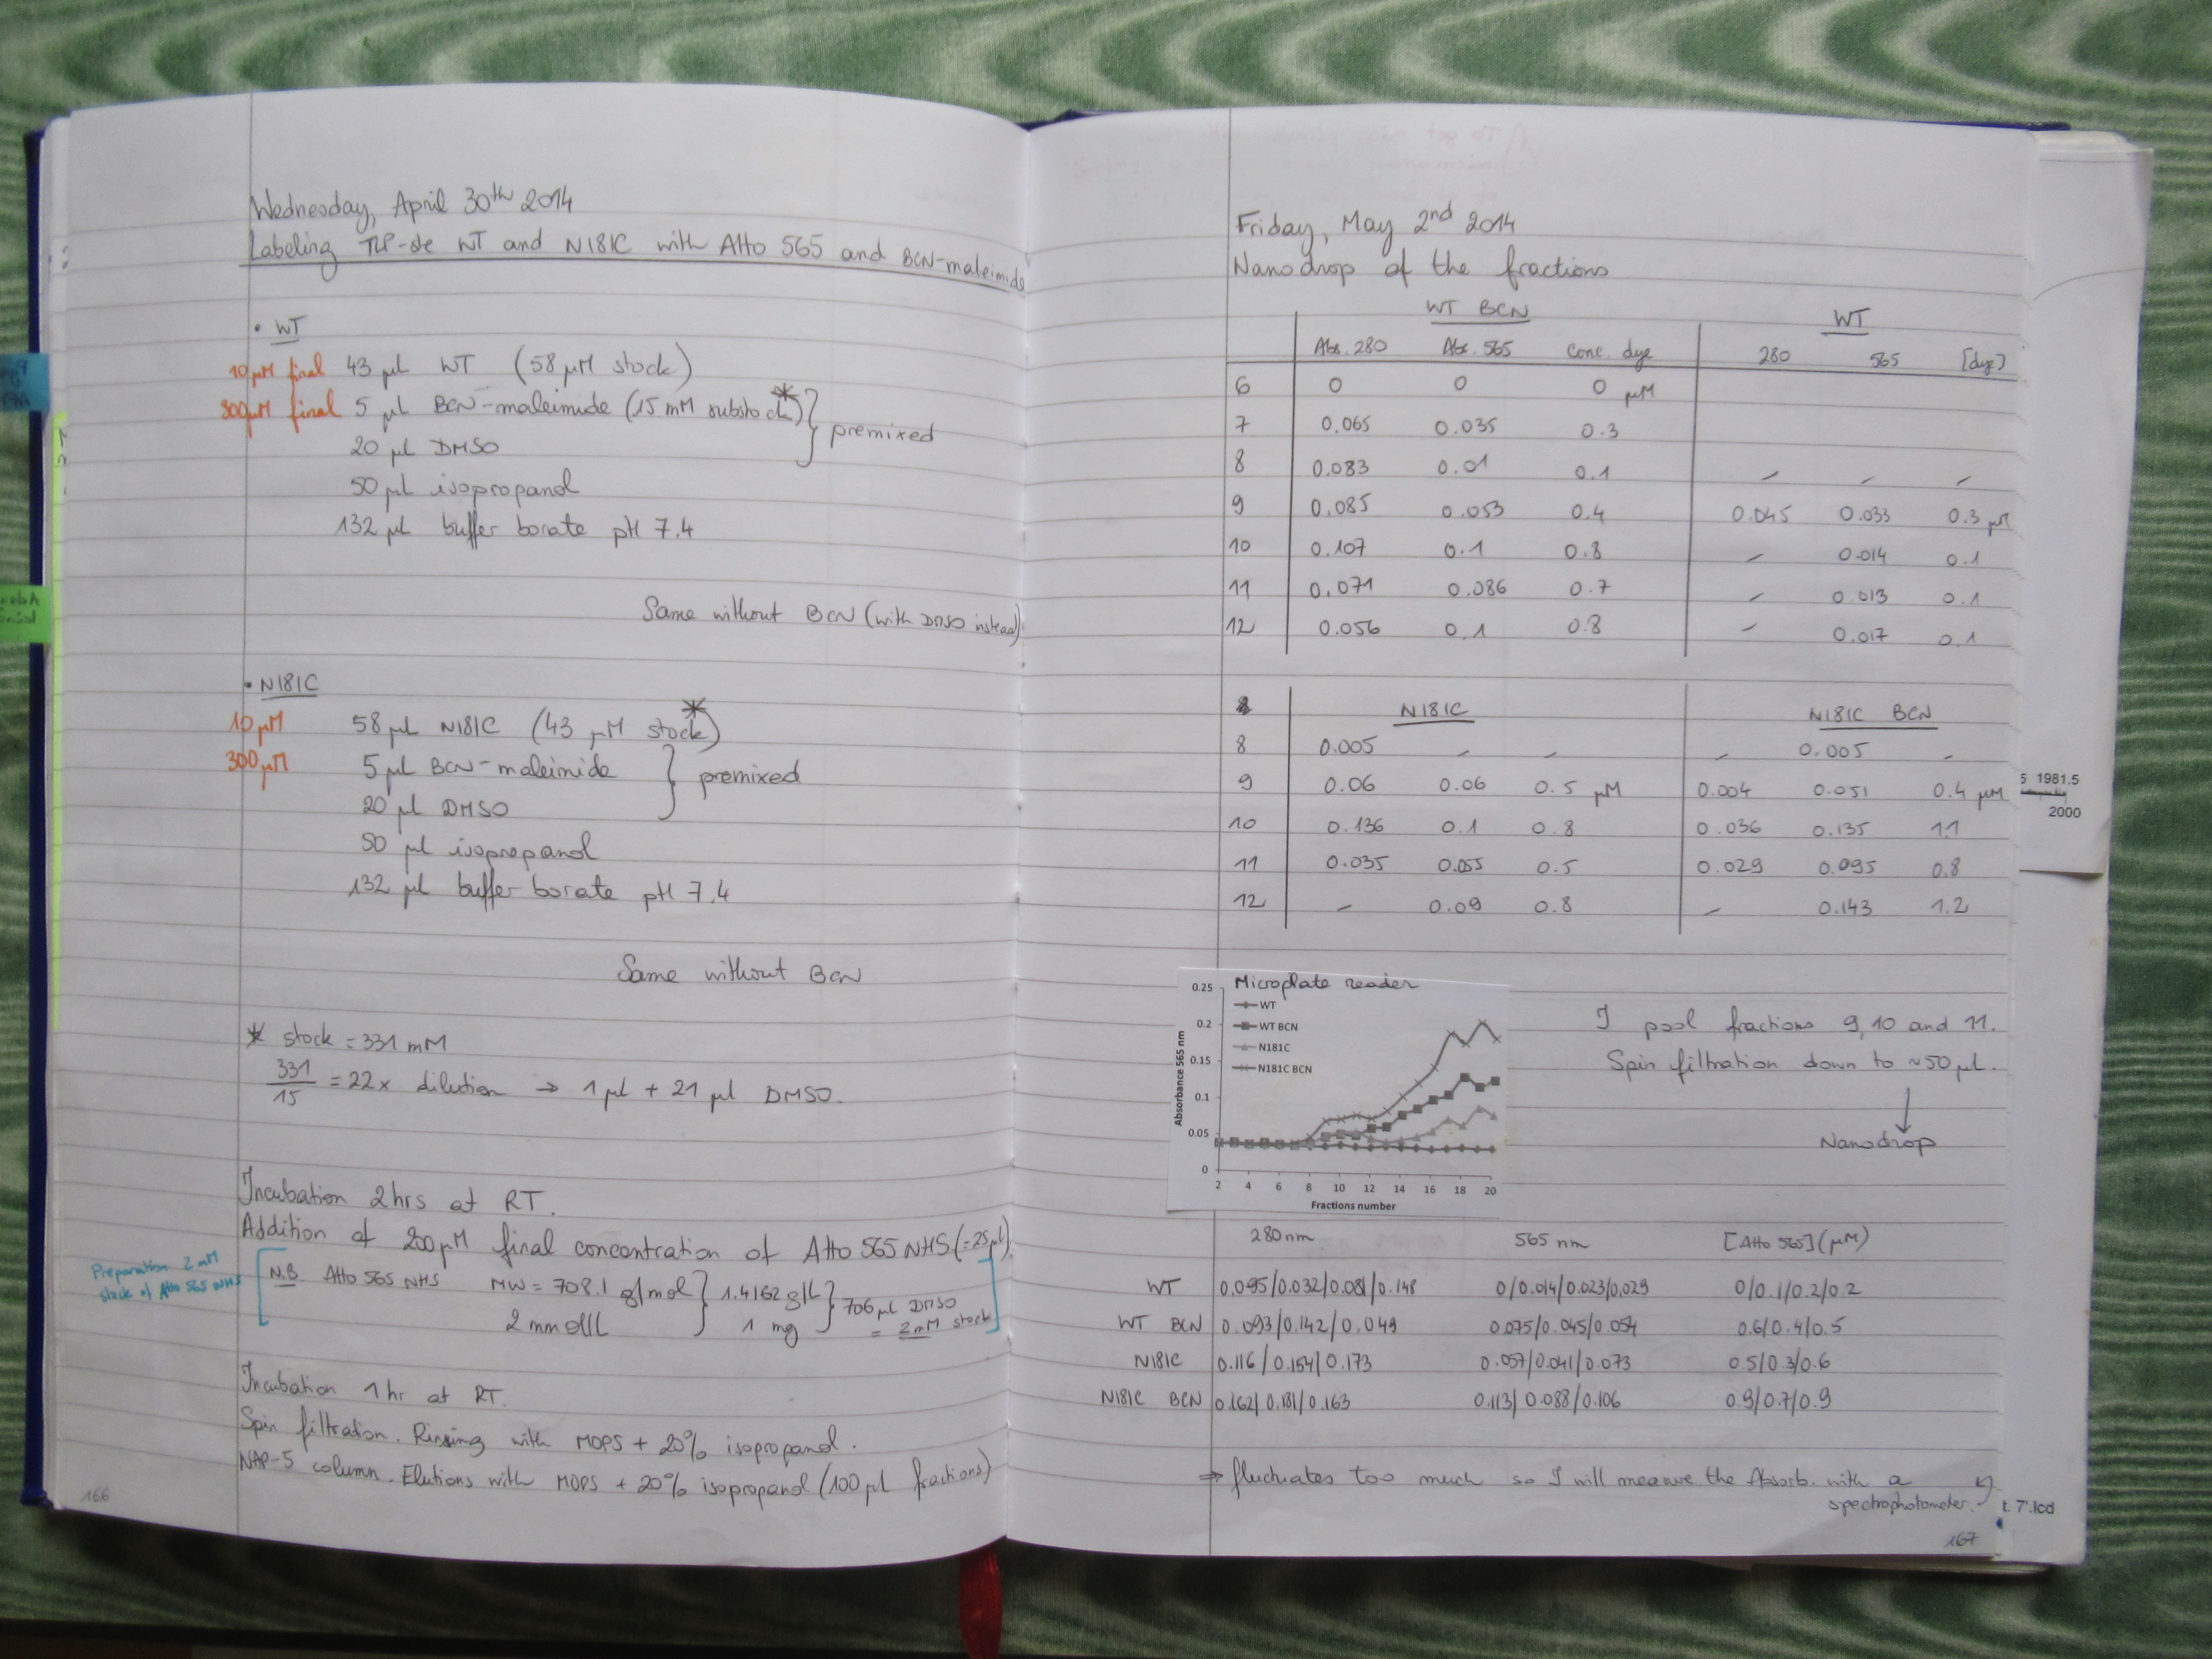 Wednesday, April 30th 2014
Labeling TLP-ste WT and N181C with Atto 565 and BCN-maleimide
• WT
10 µM final 43 µl WT (58 µM stock)
300µM final 5 µl BCN-maleimide (15 mM substock)* } premixed
20 µl DMSO
50 µl isopropanol
132 µl buffer borate pH 7.4
Same without BCN (with DMSO instead)
• N181C
10 µM 58 µl N181C (43 µM stock)
300 µM 5 µl BCN-maleimide* } premixed
20 µl DMSO
50 µl isopropanol
132 µl buffer borate pH 7.4
Same without BCN
* stock = 331 mM
331/15 = 22x dilution → 1 µl + 21 µl DMSO.
Incubation 2hrs at RT.
Addition of 200µM final concentration of Atto 565 NHS (=25µl).
Preparation 2 mM
stock of Atto 565 NHS
N.B Atto 565 NHS MW = 708.1 g/mol } 1.4162 g/L } 706 µl DMSO
2 mmol/L 1 mg = 2 mM stock
Incubation 1 hr at RT.
Spin filtration. Rinsing with MOPS + 20% isopropanol.
NAP-5 column. Elutions with MOPS + 20% isopropanol (100 µl fractions)
166
Friday, May 2nd 2014
Nanodrop of the fractions
WT BCN WT
Abs. 280 Abs. 565 Conc. dye 280 565 [dye]
6 0 0 0 µM
7 0.065 0.035 0.3
8 0.083 0.01 0.1 - - -
9 0.085 0.053 0.4 0.045 0.033 0.3 µM
10 0.107 0.1 0.8 - 0.014 0.1
11 0.071 0.086 0.7 - 0.013 0.1
12 0.056 0.1 0.8 - 0.017 0.1
N181C N181C BCN
8 0.005 - - - 0.005 -
9 0.06 0.06 0.5 µM 0.004 0.051 0.4 µM
10 0.136 0.1 0.8 0.036 0.135 1.1
11 0.035 0.055 0.5 0.029 0.095 0.8
12 - 0.09 0.8 - 0.143 1.2
5 1981.5
2000
Microplate reader
Absorbance 565 nm
0.25
0.2
0.15
0.1
0.05
0
WT
WT BCN
N181C
N181C BCN
2 4 6 8 10 12 14 16 18 20
Fractions number
I pool fractions 9, 10 and 11.
Spin filtration down to ~50 µl.
↓
Nanodrop
280nm 565 nm [Atto 565] (µM)
WT 0.095/0.032/0.081/0.148 0/0.014/0.023/0.029 0/0.1/0.2/0.2
WT BCN 0.093/0.142/0.049 0.075/0.045/0.054 0.6/0.4/0.5
N181C 0.116/0.154/0.173 0.057/0.041/0.073 0.5/0.3/0.6
N181C BCN 0.162/0.181/0.163 0.113/0.088/0.106 0.9/0.7/0.9
⇒ fluctuates too much so I will measure the Absorb. with a
spectrophotometer.
t. 7'.lcd
167